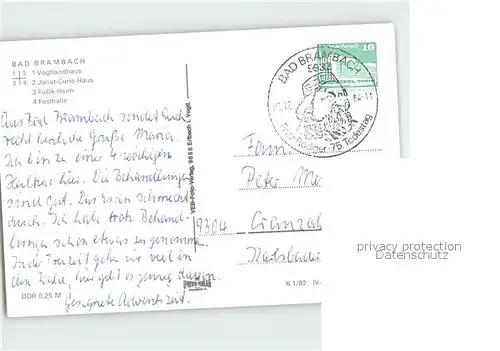 BAD BRAMBACH
1 2 1 Vogtlandhaus
3 4 2 Joliot-Curie-Haus
3 Fučik-Heim
4 Festhalle
Aus Bad Brambach sendet Euch
recht herzliche Grüße Maria.
Ich bin zu einer 4-wöchigen
Heilkur hier. Die Behandlungen
sind gut. Das Essen schmeckt
auch. Ich habe trotz Behand-
lungen schon etwas zugenommen.
In der Freizeit gehe ich viel in
den Wald, hier gibt es genug davon.
Gesegnete Adventszeit.
DDR 0,25 M
VEB Foto-Verlag, 9658 Erlbach i. Vogtl.
K 1/82 IV-
BAD BRAMBACH
5932
75. Todestag
10
Fam
Peter M
9304 Cranzahl
Karlsbader
privacy protection
Datenschutz